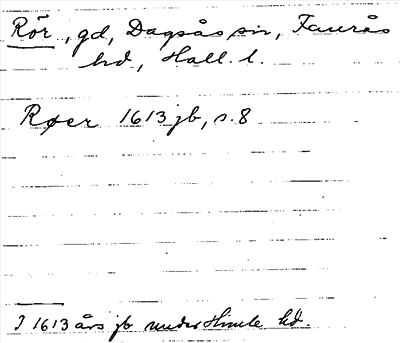 Rör, gd, Dagsås sn, Faurås
hd, Hall. l.
Røer 1613 jb, s. 8
I 1613 års jb under Himle hd.